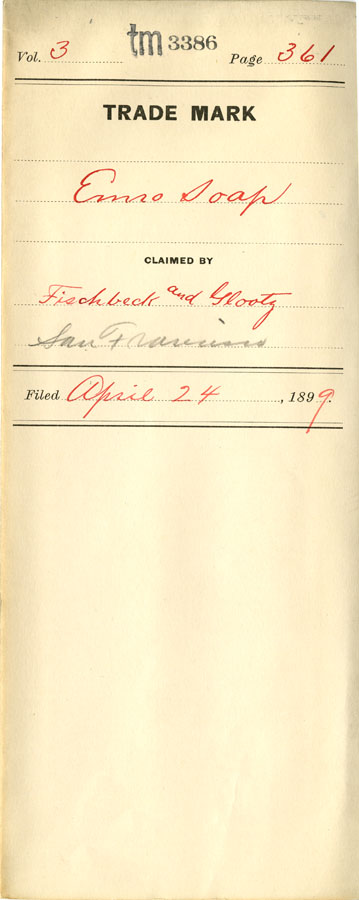 tm 3386
Vol. 3 Page 361
TRADE MARK
Enro Soap
CLAIMED BY
Fischbeck and Glootz
San Francisco
Filed April 24, 1899.